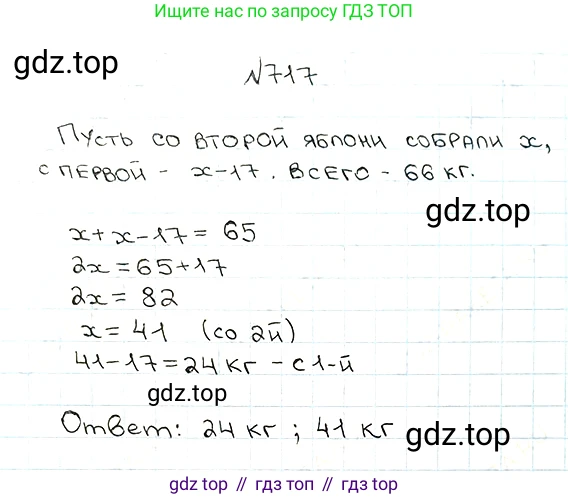 Ищите нас по запросу ГДЗ ТОП
gdz.top
№717
Пусть со второй яблони собрали x,
с первой - x-17. Всего - 66 кг.
gdz.top
x+x-17=65
2x=65+17
2x=82
x=41 (со 2й)
41-17=24 кг - с 1-й
gdz.top
Ответ: 24 кг; 41 кг
gdz.top
gdz.top // гдз топ // гдз top